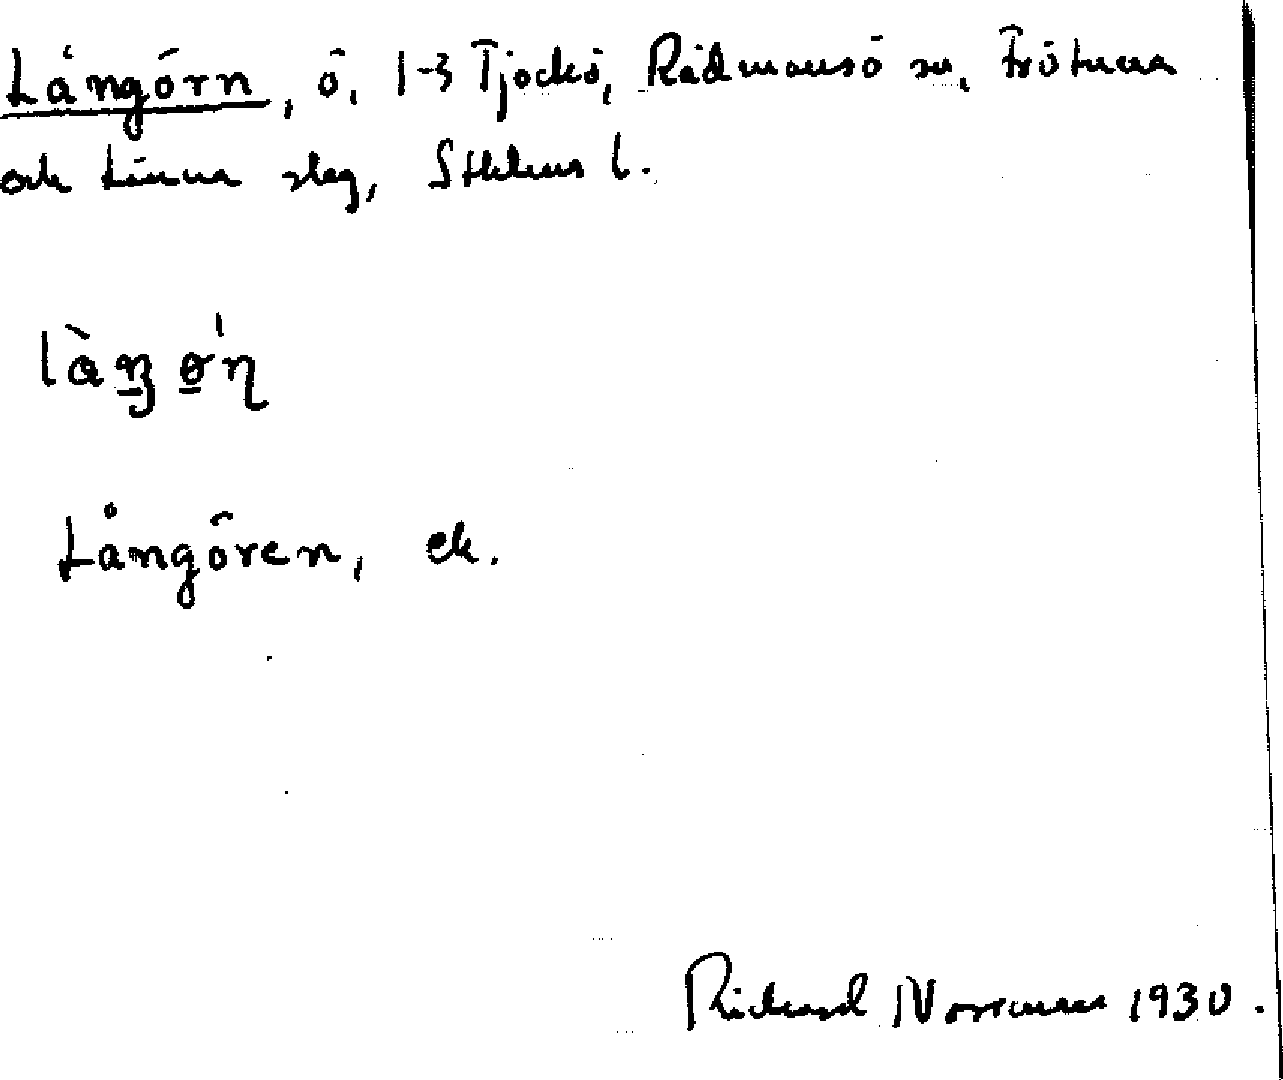 Långörn, ö, 1-3 Tjockö, Rådmansö sn, Frötuna
och Länna slag, Sthlms l.
Långören, ek.
Richard Norrman 1930.